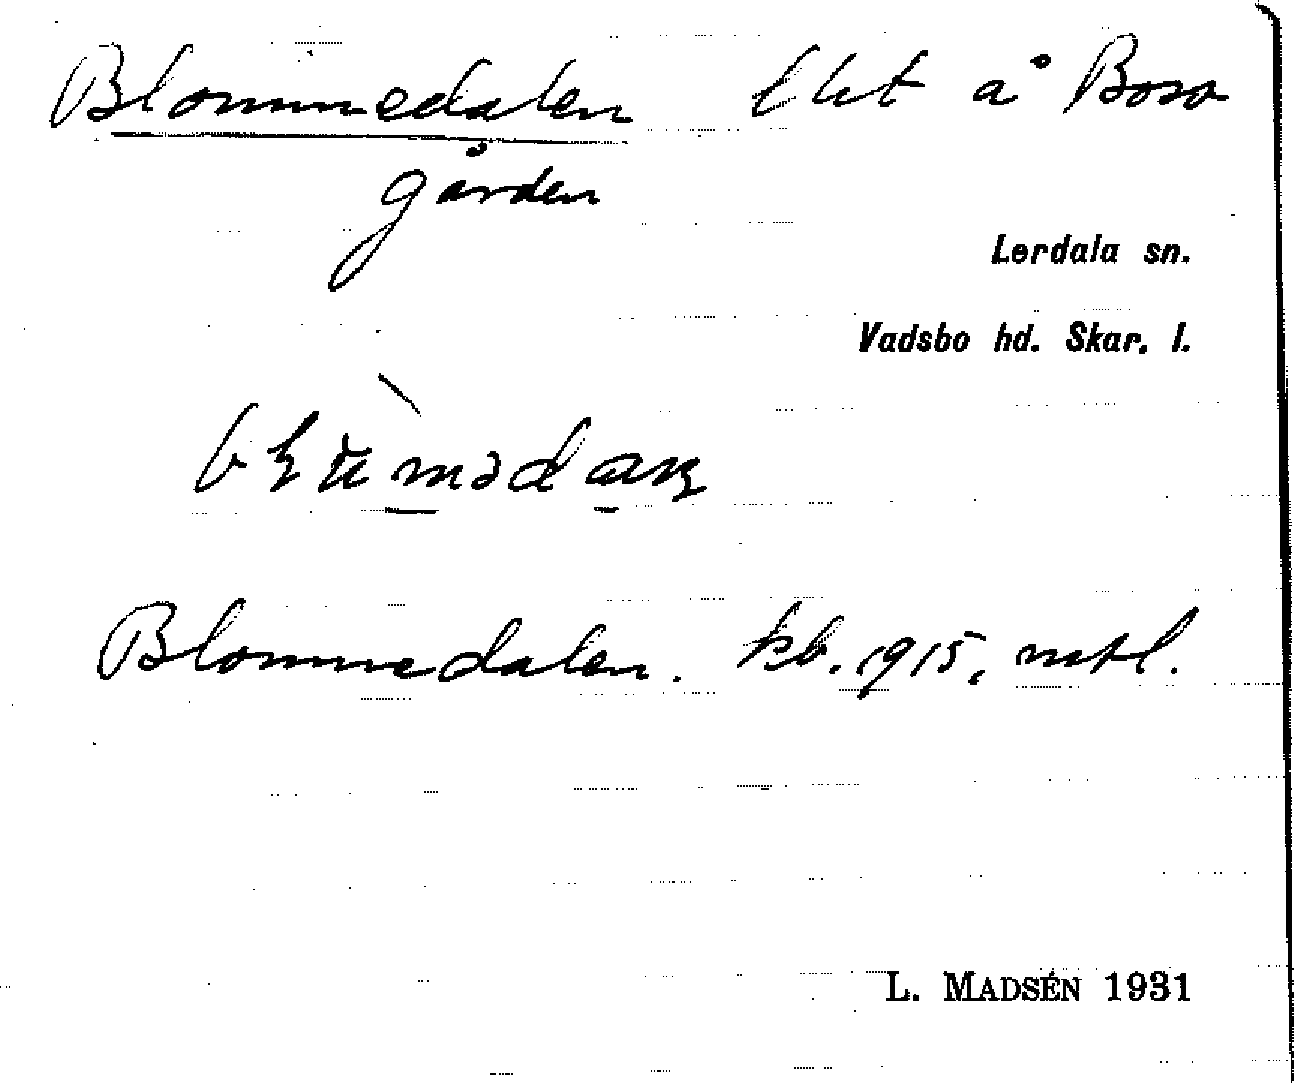 Blommedalen lht å Boso
gården
Lerdala sn.
Vadsbo hd. Skar. l.
Blommedalen. kb. 1915, mtl.
L. MADSÉN 1931